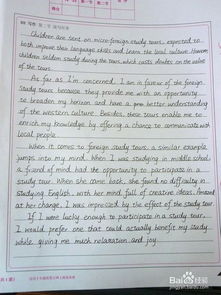 Children are sent on micro-foreign study tours, expected to
both improve their language skills and learn the local culture. However
children seldom study during the tours, which casts doubt on the value
of the tours.
As far as I'm concerned, I am in favour of the foreign
study tours because they provide me with an opportunity
to broaden my horizon and have a better understanding
of the western culture. Besides, these tours enable me to
enrich my knowledge by offering a chance to communicate with
local people.
When it comes to foreign study tours, a similar example
jumps into my mind. When I was studying in middle school,
a friend of mind had the opportunity to participate in a
study tour. When she came back, she found no difficulty in
studying English, with her mind full of creative ideas. Amazed
at her change, I was impressed by the effect of the study tour.
If I were lucky enough to participate in a study tour,
I would prefer one that could actually benefit my study
while giving me much relaxation and joy.
Baidu 经验